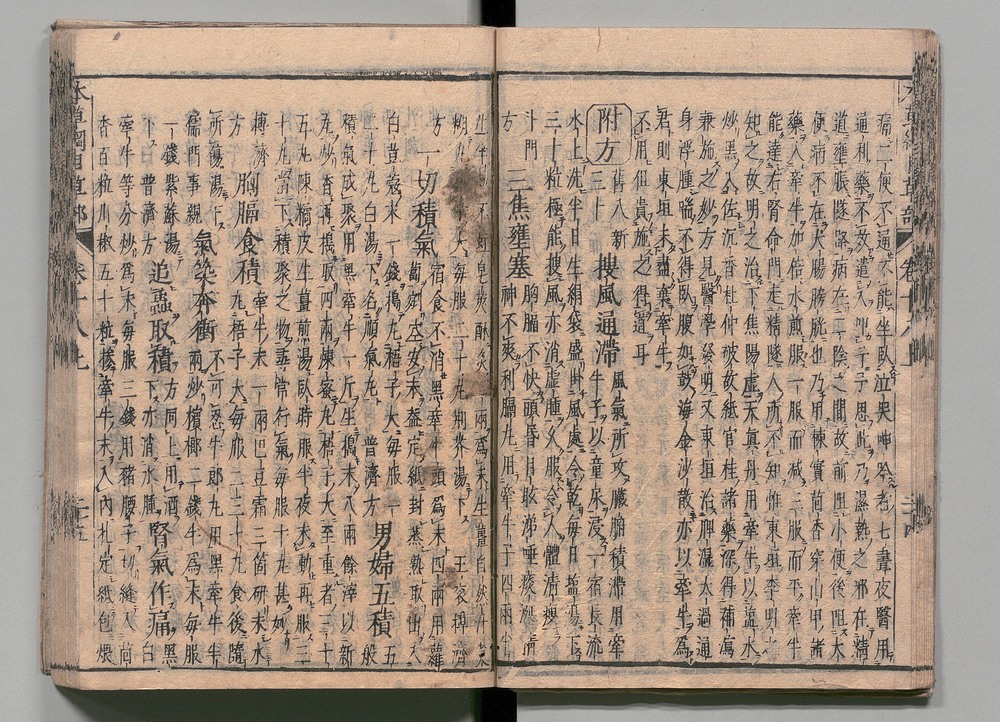 痛二便不通不能坐臥泣哭呻吟者七晝夜醫用
通利藥不效遣人叩予予思此乃濕熱之邪在精
道壅脹隧路病在二陰之間故前阻小便後阻大
便病不在大腸膀胱也乃用楝實茴香穿山甲諸
藥入牽牛加倍水煎服一服而減三服而平牽牛
能達右腎命門走精隧人所不知惟東垣李明之
知之故明之治下焦陽虛天真丹用牽牛以鹽水
炒黑入佐沉香杜仲破故紙官桂諸藥深得補瀉
兼施之妙方見醫學發明又東垣治脾濕太過通
身浮腫喘不得臥腹如鼓海金沙散亦以牽牛為
君則東垣未盡棄牽牛
不用但貴施之得道耳
附方 舊八新三十 搜風通滯 風氣所攻臟腑積滯用牽牛子以童尿浸一宿長流
水上洗半日生絹袋盛掛風處令乾每日鹽湯下
三十粒極能搜風亦消虛腫久服令人體清瘦
斗門方 三焦壅塞 胸膈不快頭昏目眩涕唾痰涎精神不爽利膈丸用牽牛子四兩半
生半 不 皂莢酥炙二兩為末生薑自然汁煮
糊丸 大每服二十丸荊芥湯下 王袞博濟
方 一切積氣 宿食不消黑牽牛頭為末四兩用蘿蔔剜空安末蓋定紙封蒸熟取出入
白豆蔻末一錢搗丸梧子大每服一
二十丸白湯下名順氣丸 普濟方 男婦五積 五般
積氣成聚用黑牽牛一斤生搗末八兩餘滓以新
瓦炒香再搗取四兩煉蜜丸梧子大至重者三十
五丸陳橘皮生薑煎湯臥時服半夜未動再服三
十丸當下積聚之物尋常行氣每服十丸甚妙
博濟方 胸膈食積 牽牛末一兩巴豆霜三箇研末水丸梧子大每服二三十丸食後隨
所傷湯下
儒門事親 氣築奔衝 不可忍牛郎丸用黑牽牛半兩炒檳榔二錢半為末每服
一錢紫蘇湯
下 普濟方 追蟲取積 方同上用酒下亦消水腫 腎氣作痛 黑白
牽牛等分炒為末每服三錢用豬腰子切縫入茴
香百粒川椒五十粒摻牽牛末入內扎定紙包煨